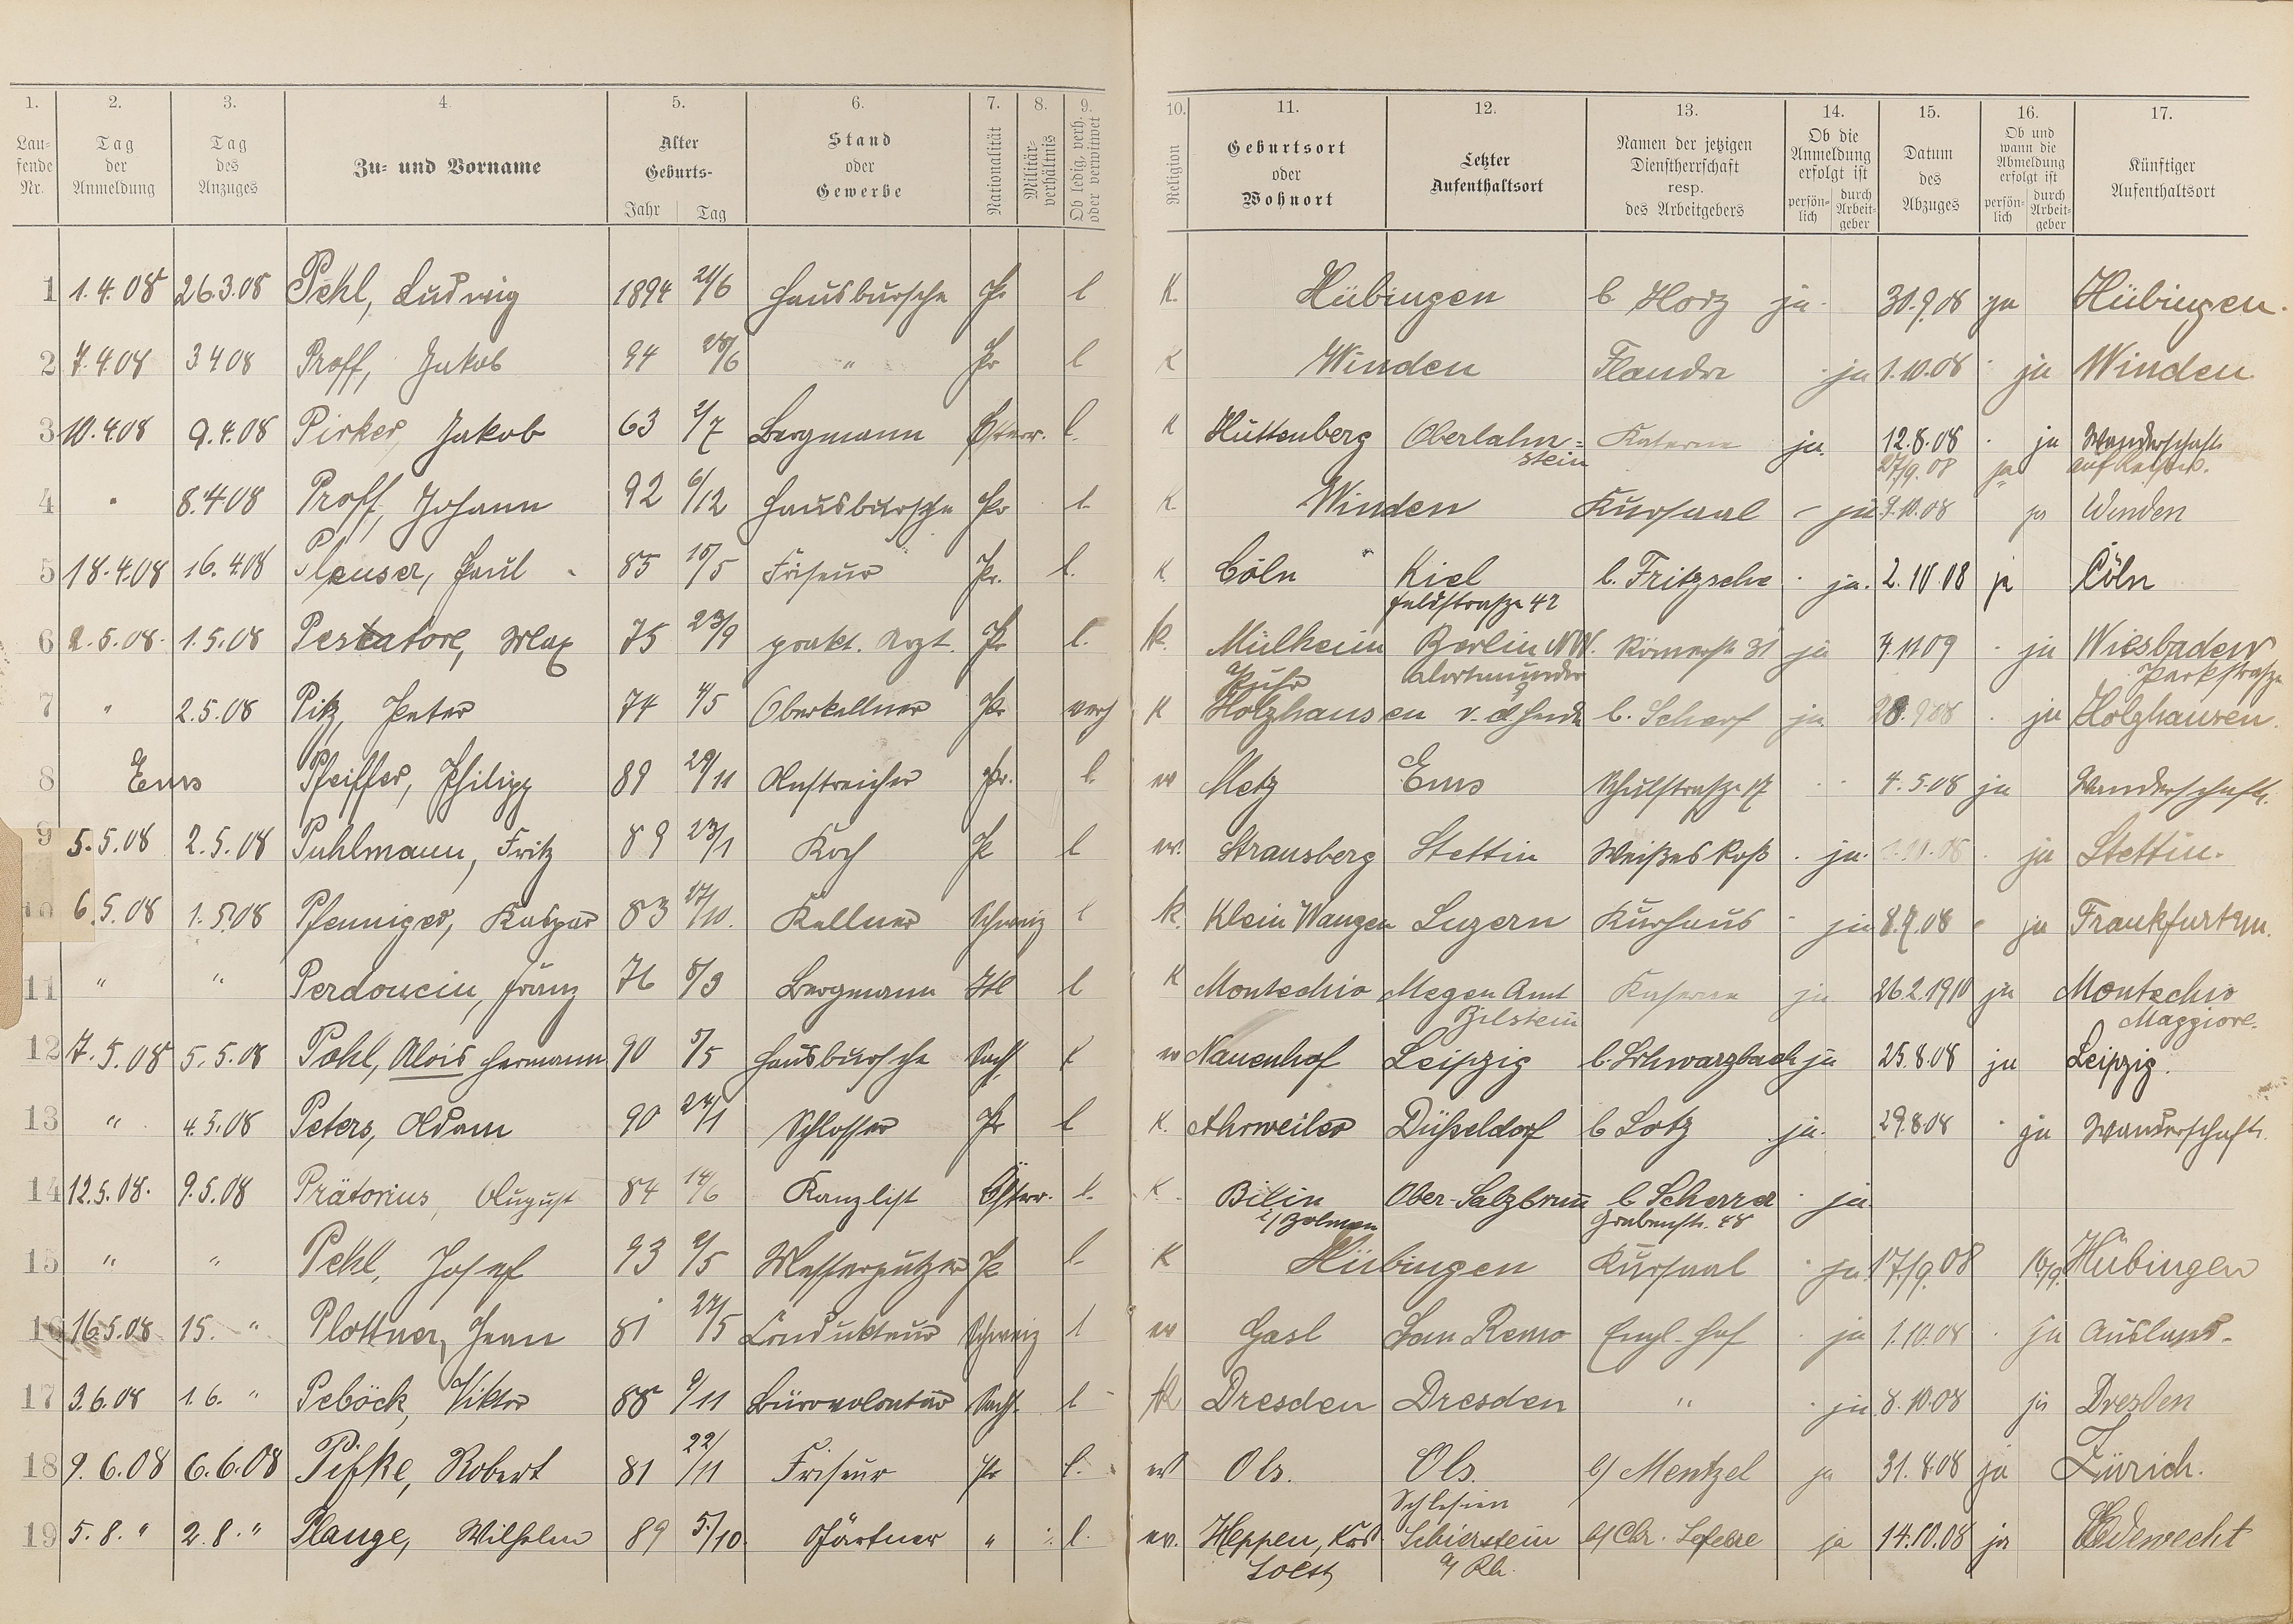 1. 2. 3. 4. 5. 6. 7. 8. 9. 10. 11. 12. 13. 14. 15. 16. 17.
Lau-
fende
Nr.
Tag
der
Anmeldung
Tag
des
Anzuges
Zu- und Vorname
Alter
Geburts-
Jahr Tag
Stand
oder
Gewerbe
Nationalität
Militär-
verhältnis
Ob ledig, verh.
oder verwitwet
Religion
Geburtsort
oder
Wohnort
Letzter
Aufenthaltsort
Namen der jetzigen
Dienstherrschaft
resp.
des Arbeitgebers
Ob die
Anmeldung
erfolgt ist
persön-
lich
durch
Arbeit-
geber
Datum
des
Abzuges
Ob und
wann die
Abmeldung
erfolgt ist
persön-
lich
durch
Arbeit-
geber
Künftiger
Aufenthaltsort
1 1.4.08 26.3.08 Pehl, Ludwig 1894 21/6 Hausbursche Pr l K. Hübingen b. Horz ja 30.9.08 ja Hübingen.
2 7.4.08 3 4 08 Proff, Jakob 94 28/6 " Pr l K Winden Flandre ja 1.10.08 ja Winden
3 10.4.08 9.4.08 Pirker, Jakob 63 2/7 Bergmann Österr. l. K Hüttenberg Oberlahn= Kaserne ja. 12.8.08 ja Wanderschaft
stein 27/9.08 ja
4 " 8.4.08 Proff, Johann 92 6/12 Hausbursche Pr l. K Winden Kursaal ja 9.10.08 ja Winden
5 18.4.08 16.4.08 Pleuser, Paul 85 15/5 Friseur Pr. l. K. Cöln Kiel b. Fritzsche ja. 2.10.08 ja Cöln
Feldstraße 42
6 2.5.08. 1.5.08 Pescatore, Max 75 23/9 prakt. Arzt. Pr l. K. Mülheim Berlin NW. Römerstr 31 ja 7.11 09 ja Wiesbaden
a/Ruhr Parkstraße
7 " 2.5.08 Pitz, Peter 74 4/5 Oberkellner Pr verh K Holzhausen v. d. b. Scharf ja 28.9 08 ja Holzhausen.
8 Ems Pfeiffer, Philipp 89 29/11 Anstreicher Pr. l. ev Metz Ems Schulstraße 4.5.08 ja Wanderschaft.
9 5.5.08 2.5.08 Puhlmann, Fritz 89 23/1 Koch Pr l ev. Strausberg Stettin Weißes Roß ja. ja Stettin.
10 6.5.08 1.5.08 Pfenniger, Kaspar 83 17/10. Kellner Schweiz l K. Klein Wangen Luzern Kurhaus ja 8.7.08 ja Frankfurt a/M.
11 " " Perdoncin, Franz 76 8/3 Bergmann Itl l K Montechio Megen Amt Kaserne ja 26.2.1910 ja Montechio
Bilstein Maggiore.
12 7.5.08 5.5.08 Pohl, Alois Hermann 90 5/5 Hausbursche Sachs l ev Nauenhof Leipzig b. Schwarzbach ja 25.8.08 ja Leipzig.
13 " 4.5.08 Peters, Adam 90 24/1 Schlosser Pr l K. Ahrweiler Düsseldorf b Lotz ja. 29.8.08 ja Wanderschaft.
14 12.5.08. 9.5.08 Prätorius, August 84 14/6 Kanzlist Österr. l. K. Bilin Ober-Salzbrunn b Scherrer ja.
i/Böhmen Grabenstr. 48
15 " " Pehl, Josef 93 2/5 Messerputzer Pr l. K Hübingen Kursaal ja 17./9.08 16/9. Hübingen
16 16.5.08 15. " Plottner, Jean 81 24/5 Condukteur Schweiz l ev San Remo Engl. Hof ja 1.10.08 ja Ausland.
17 3.6.08 1.6. " Peböck, Viktor 88 9/11 Bürovolontär Sachs. l K Dresden Dresden " ja 8.10.08 ja Dresden
18 9.6.08 6.6.08 Pifke, Robert 81 22/11 Friseur Pr l. ev Ols. Ols. b/ Mentzel ja 31.8.08 ja Zürich.
Schlesien
19 5.8. " 2.8. " Plange, Wilhelm 89 5./10. Gärtner " l. ev. Heppen, Krs Schierstein b/ Chr. Lefebre ja 14.10.08 ja Edewecht
Soest a/ Rh.